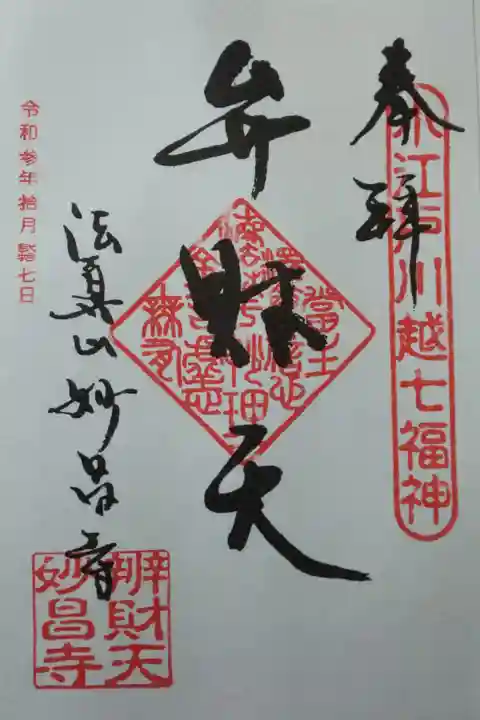 奉拝
小江戸川越七福神
弁財天
法眞山妙昌寺
令和参年拾月廿七日
辨財天
妙昌寺